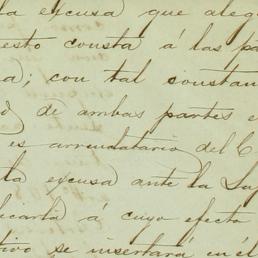 la excusa que aleg
esto consta á las pa
a; con tal constan
de ambas partes e
es arrendatario del C
la excusa ante la Su
icarla á cuyo efecto
tivo se insertará en el